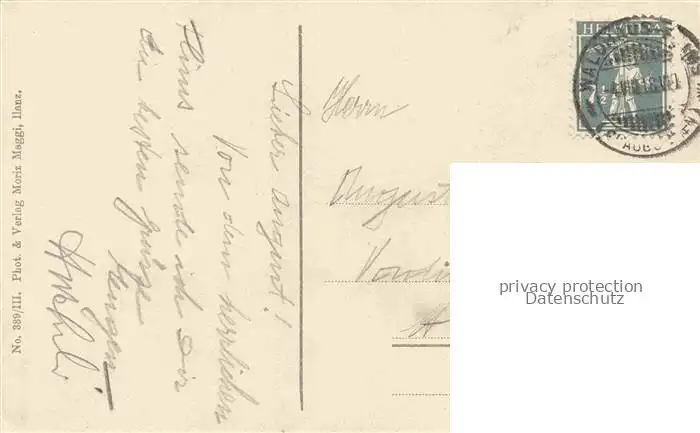 No. 389/III. Phot. & Verlag Moriz Maggi, Ilanz.
Lieber August!
Von dem herrlichen
Flims sende ich Dir
die besten Grüsse
HELVETIA
7½
WALD
Herrn
August
privacy protection
Datenschutz